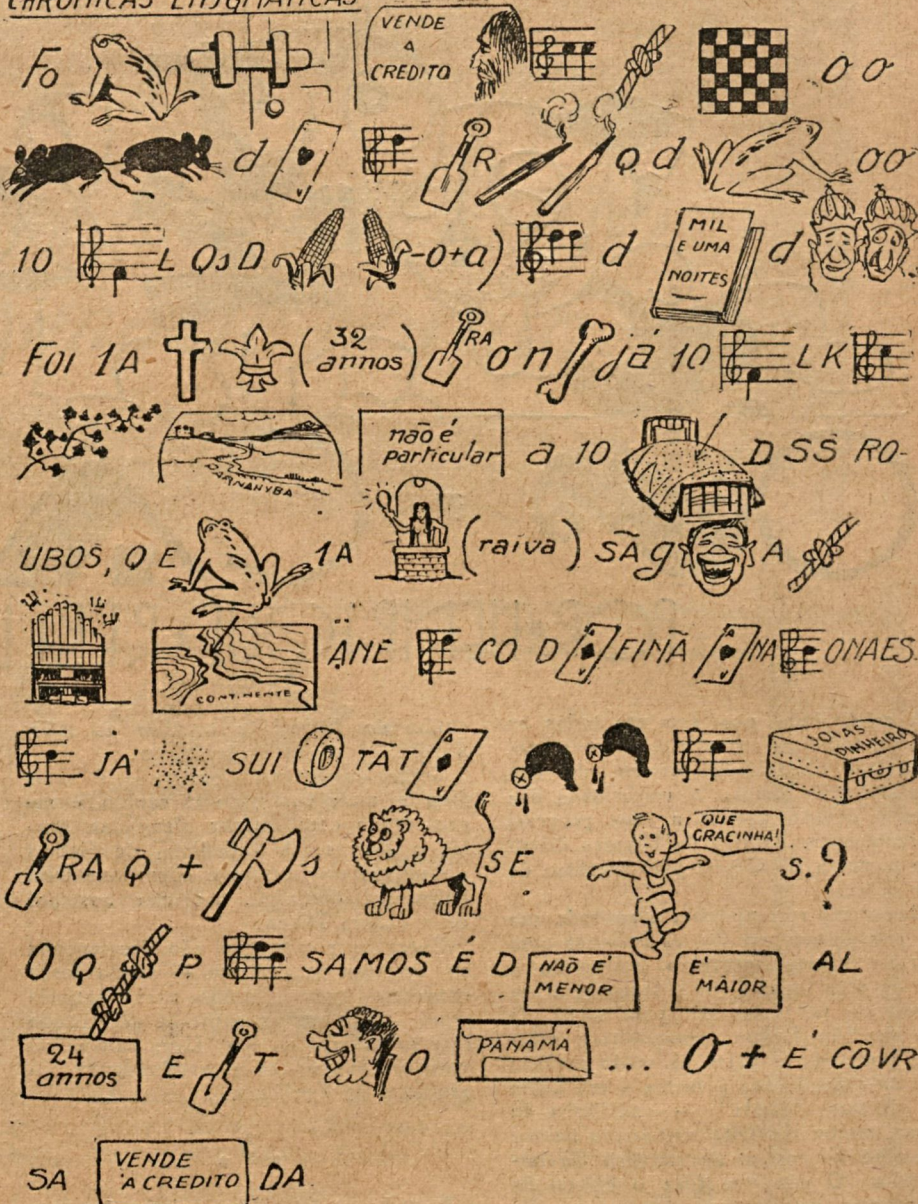 CHRONICAS ENIGMATICAS
Fo VENDE A CREDITO o o
d R Q d oo
10 L QsD -o+a) d MIL E UMA NOITES d
FOI 1A (32 annos) RA o n já 10 L K
PARNAHYBA não é particular a 10 D SS RO-
UBOS, Q E 1A (raiva) SÃ g A
CONTINENTE ÃNE CO D FINÃ NA ONAES
JÁ SUI TÃT JOIAS DINHEIRO
RA Q + s SE QUE GRACINHA! s.?
O Q P SAMOS É D NÃO E' MENOR E' MAIOR AL
24 annos E T. O PANAMÁ ... O + E' CÕVR
SA VENDE A CREDITO DA